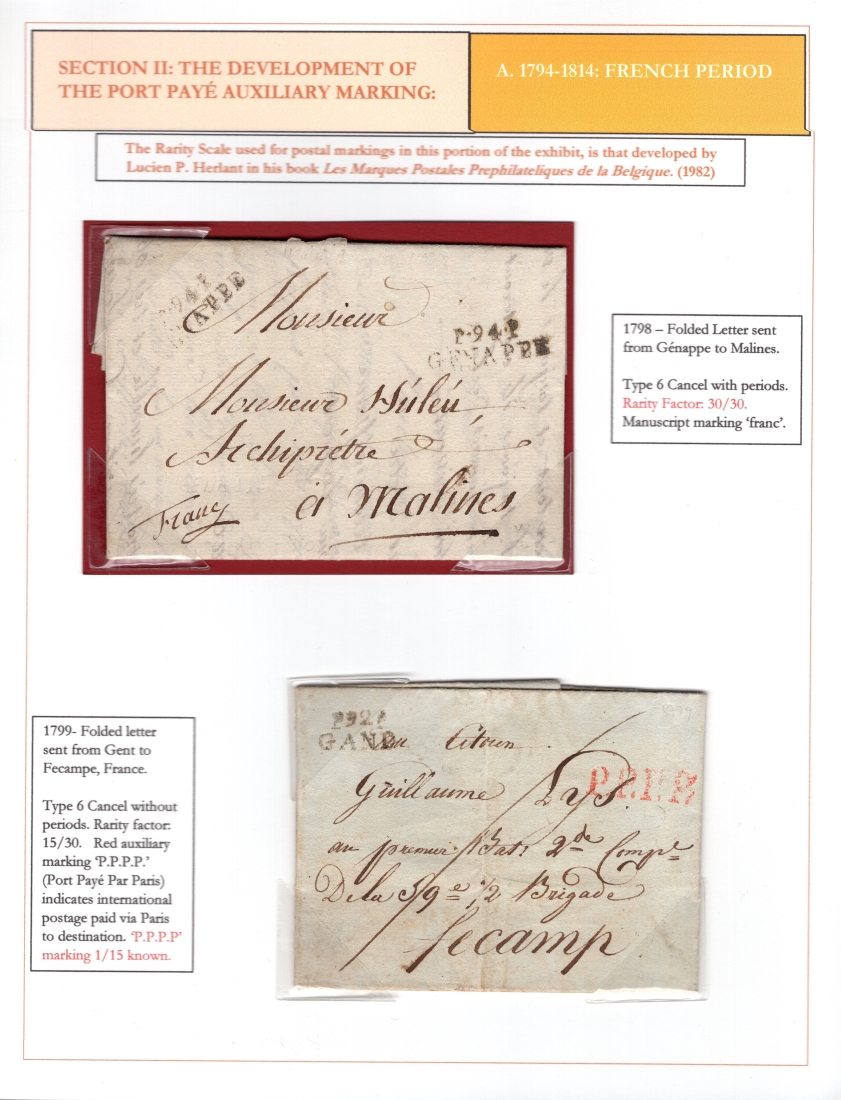 SECTION II: THE DEVELOPMENT OF
THE PORT PAYÉ AUXILIARY MARKING:
A. 1794-1814: FRENCH PERIOD
The Rarity Scale used for postal markings in this portion of the exhibit, is that developed by
Lucien P. Herlant in his book Les Marques Postales Prephilateliques de la Belgique. (1982)
P·94·P
GENAPPE
P·94·P
GENAPPE
Monsieur
Monsieur Húleú
Archiprétre
à Malines
Franc
1798 – Folded Letter sent
from Génappe to Malines.
Type 6 Cancel with periods.
Rarity Factor: 30/30.
Manuscript marking ‘franc’.
1799- Folded letter
sent from Gent to
Fecampe, France.
Type 6 Cancel without
periods. Rarity factor:
15/30. Red auxiliary
marking ‘P.P.P.P.’
(Port Payé Par Paris)
indicates international
postage paid via Paris
to destination. ‘P.P.P.P’
marking 1/15 known.
P92P
GAND
au Citoien
Guillaume Lys.
P.P.P.P.
au premier Bat: 2de Compe
De la 59e 1/2 Brigade
fecamp